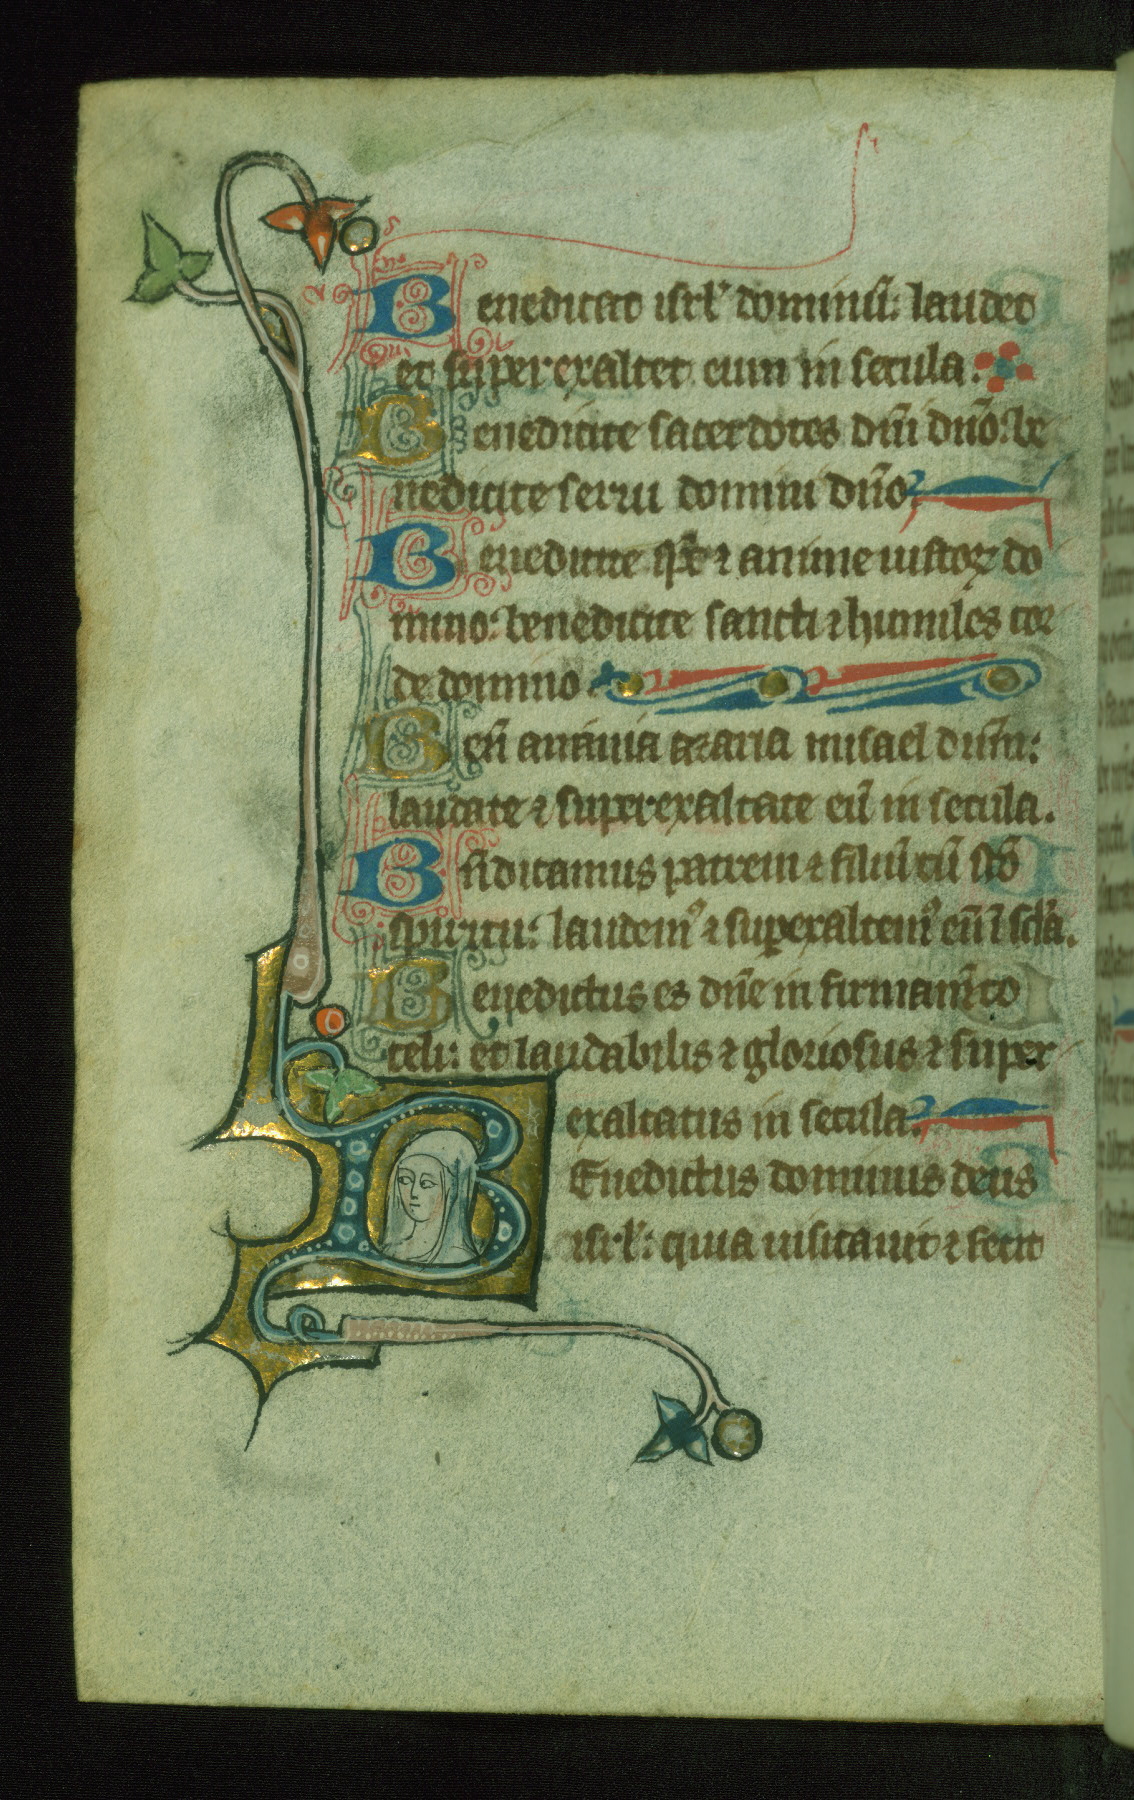 Benedicat isrl' dominū: laudet
et superexaltet eum in secula:
Benedicite sacerdotes dn̄i dn̄o: be
nedicite serui domini dn̄o.
Benedicite sp̄c ⁊ anime iustoꝝ do
mino: benedicite sancti ⁊ humiles cor
de domino
Ben̄ anania azaria misael dn̄m:
laudate ⁊ superexaltate eū in secula.
Bn̄dicamus patrem ⁊ filiū cū sc̄o
spiritu: laudemꝰ ⁊ suꝑexaltemꝰ eū ī sc̄la.
Benedictus es dn̄e in firmam̄to
celi: et laudabilis ⁊ gloriosus ⁊ super
exaltatus in secula.
BEnedictus dominus deus
isrl': quia uisitauit ⁊ fecit